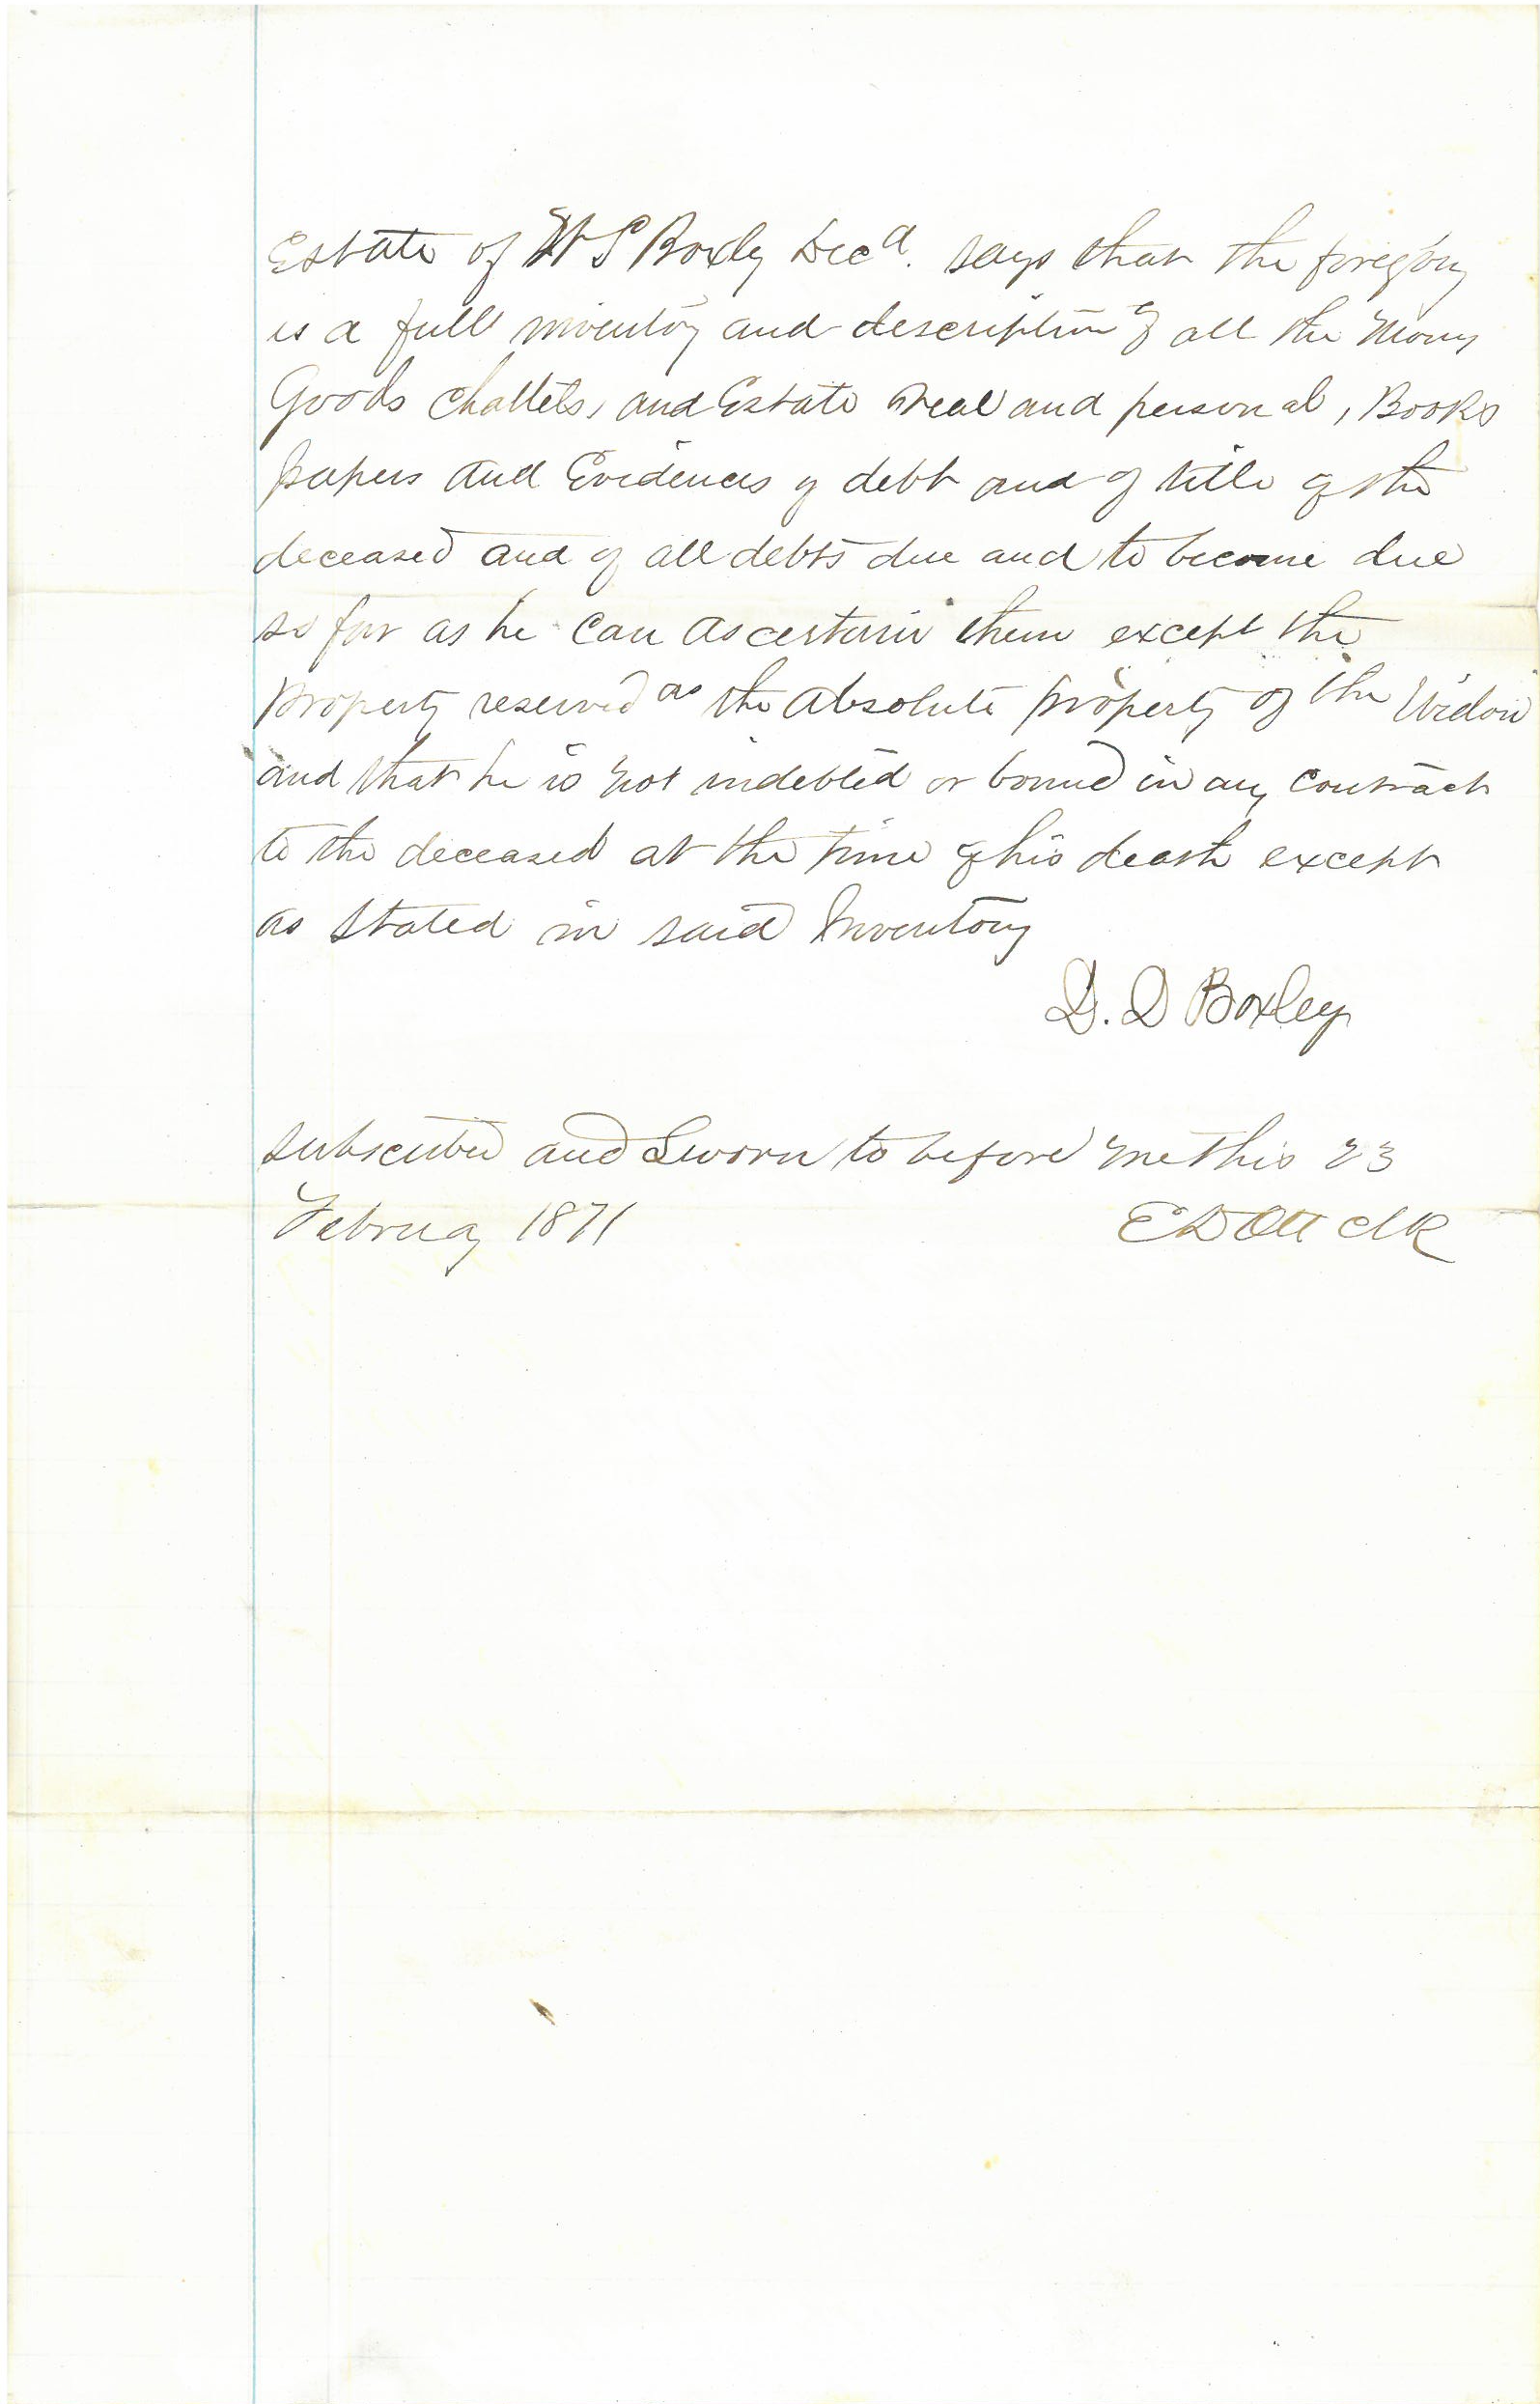 Estate of W S Boxly Decd. says that the foregoing
is a full inventory and description of all the Money
Goods Chattels, and Estate real and personal, Books
papers and Evidences of debt and of title of the
deceased and of all debts due and to become due
so far as he can ascertain them except the
property reserved as the absolute property of the Widow
and that he is not indebted or bound in any contract
to the deceased at the time of his death except
as stated in said Inventory
D. D Boxley
subscribed and Sworn to before me this 23
February 1871
E D Ott clk